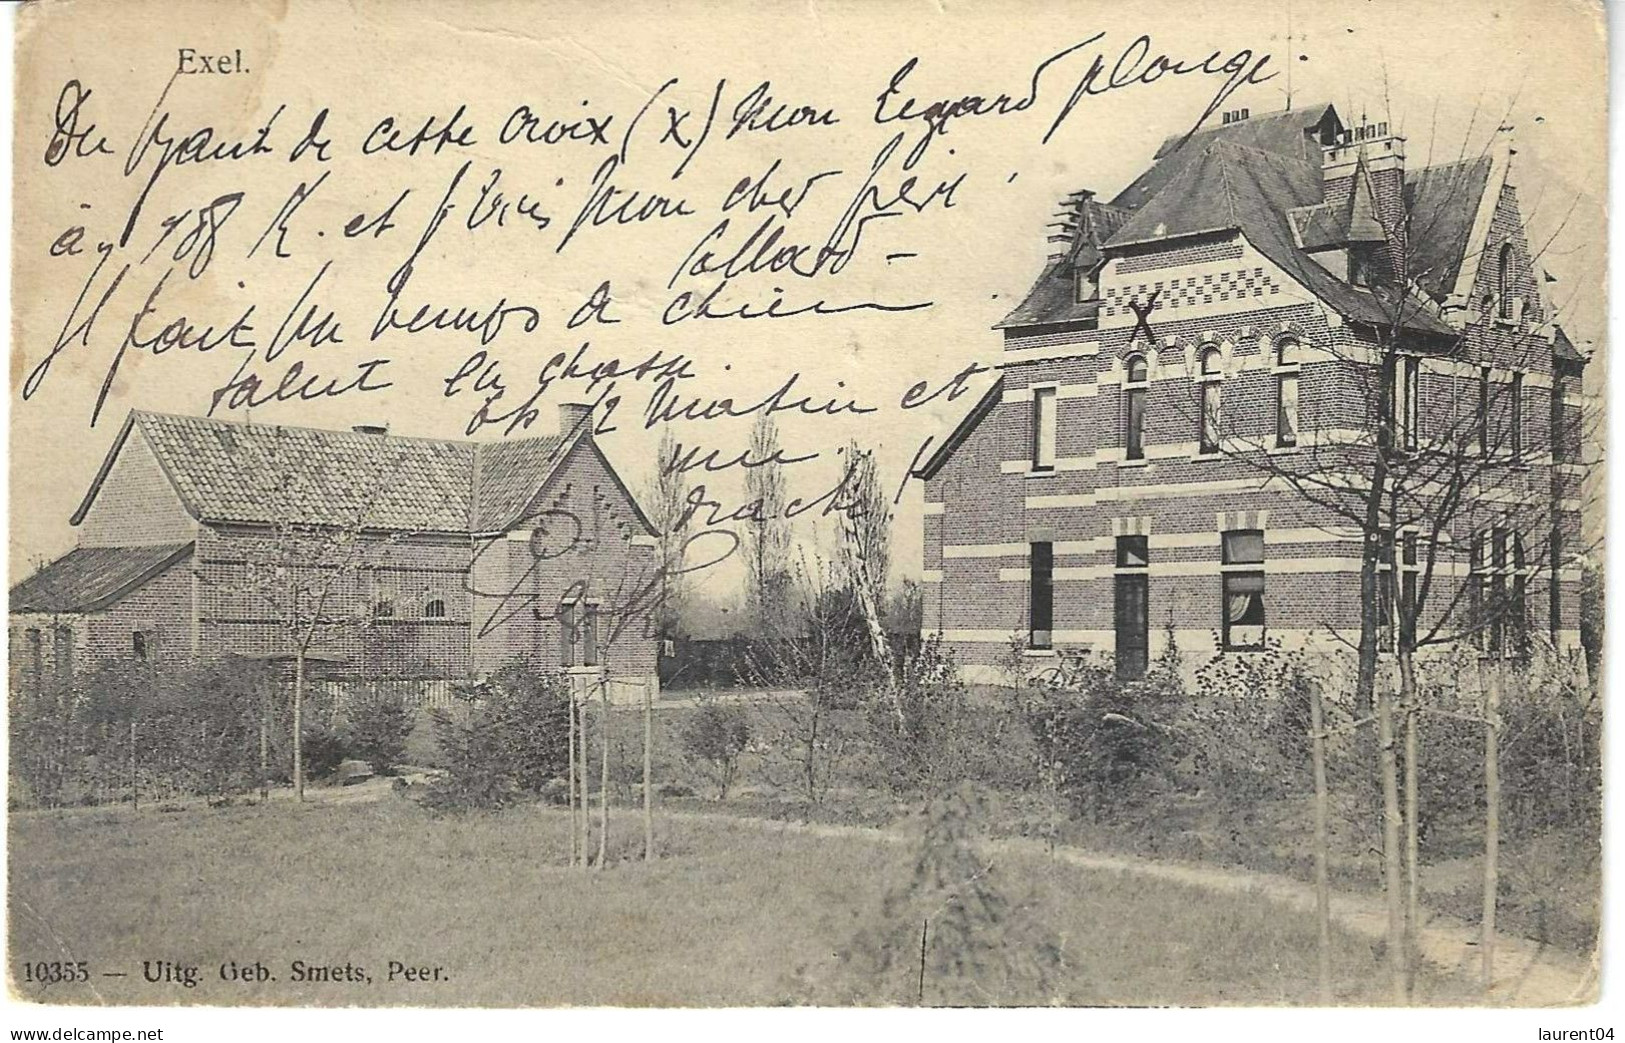 Exel.
Du haut de cette croix (x) mon regard plonge
à 188 K. et je vois mon cher
Collard -
Il fait un temps de chien
salut en chasse
1/2 matin et
drache !
X
10355 — Uitg. Geb. Smets, Peer.
delcampe.net
laurent04